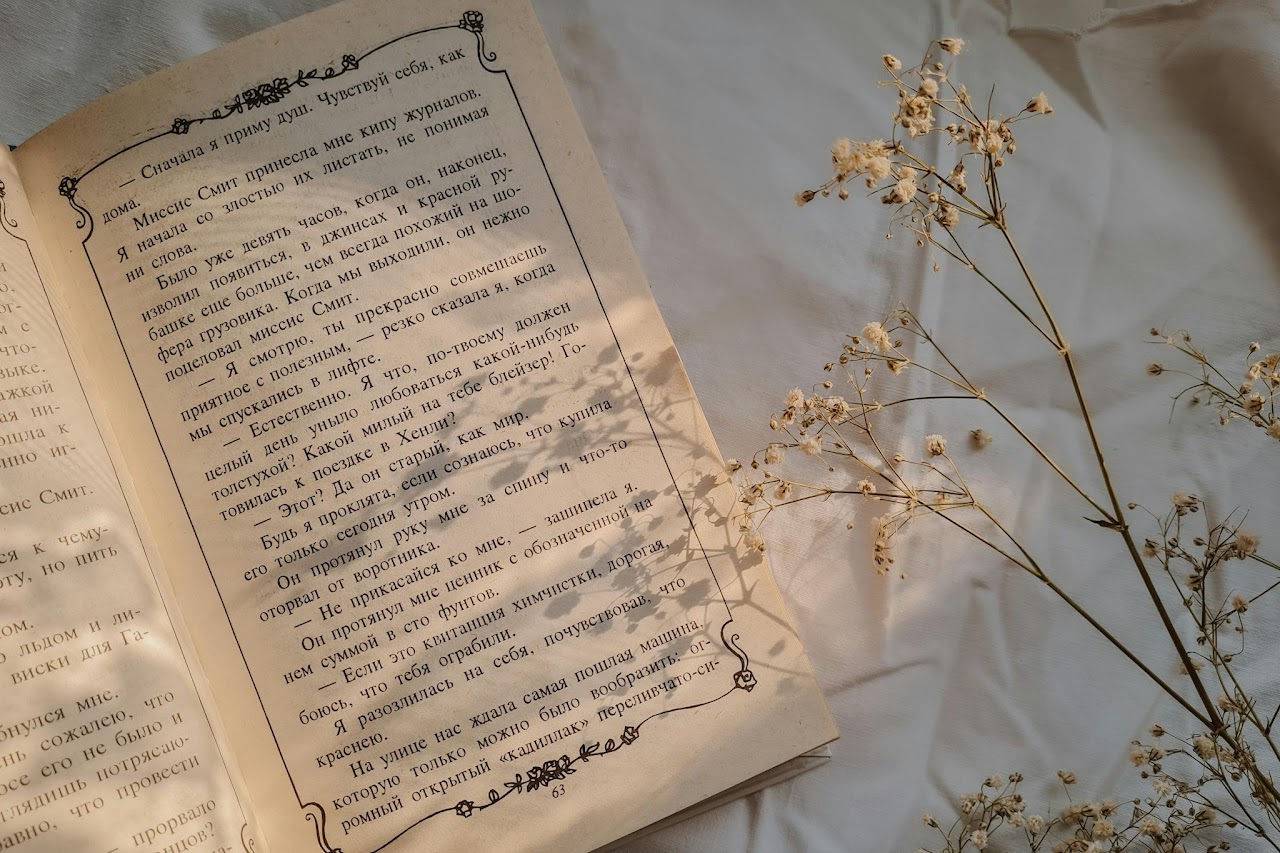 ни
о,
ог-
м с
что-
зыке.
ажкой
ая ни-
ошла к
енно иг-
сис Смит.
ся к чему-
оту, но пить
ом.
о льдом и ли-
виски для Га-
бнулся мне.
ень сожалею, что
осе его не было и
глядишь потрясаю-
авно, что провести
— прорвало
онцов?
ма-
— Сначала я приму душ. Чувствуй себя, как
дома.
Миссис Смит принесла мне кипу журналов.
Я начала со злостью их листать, не понимая
ни слова.
Было уже девять часов, когда он, наконец,
изволил появиться, в джинсах и красной ру-
башке еще больше, чем всегда похожий на шо-
фера грузовика. Когда мы выходили, он нежно
поцеловал миссис Смит.
— Я смотрю, ты прекрасно совмещаешь
приятное с полезным, — резко сказала я, когда
мы спускались в лифте.
— Естественно. Я что, по-твоему должен
целый день уныло любоваться какой-нибудь
толстухой? Какой милый на тебе блейзер! Го-
товилась к поездке в Хенли?
— Этот? Да он старый, как мир.
Будь я проклята, если сознаюсь, что купила
его только сегодня утром.
Он протянул руку мне за спину и что-то
оторвал от воротника.
— Не прикасайся ко мне, — зашипела я.
Он протянул мне ценник с обозначенной на
нем суммой в сто фунтов.
— Если это квитанция химчистки, дорогая,
боюсь, что тебя ограбили.
Я разозлилась на себя, почувствовав, что
краснею.
На улице нас ждала самая пошлая машина,
которую только можно было вообразить: ог-
ромный открытый «кадиллак» переливчато-си-
63